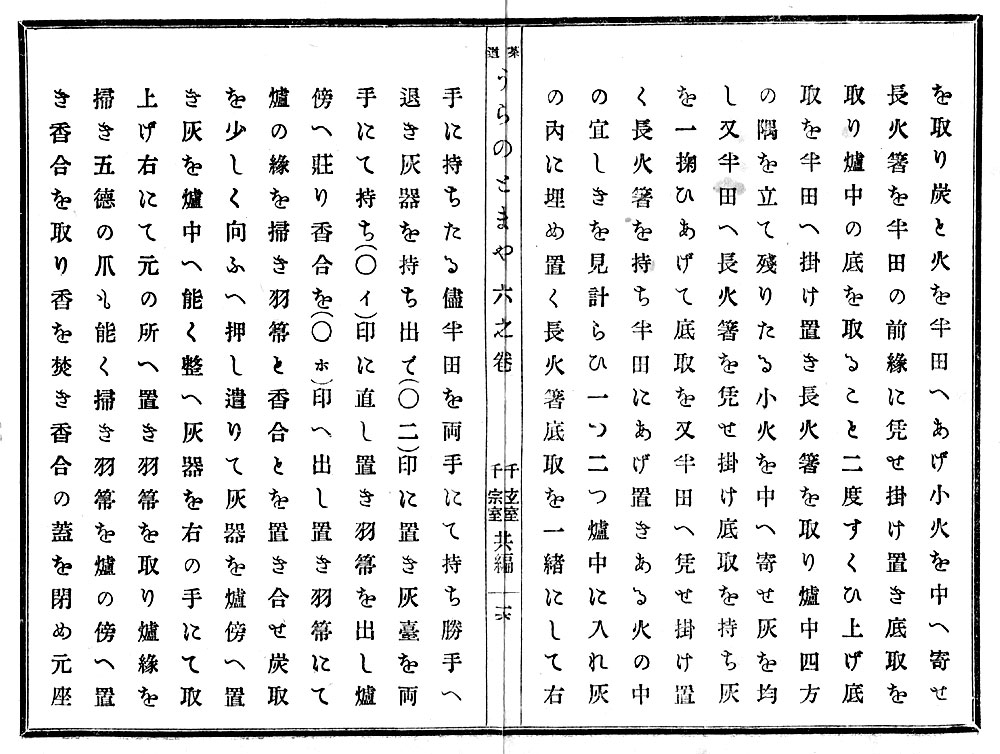 を取り炭と火を半田へあげ小火を中へ寄せ
長火箸を半田の前緣に凭せ掛け置き底取を
取り爐中の底を取ること二度すくひ上げ底
取を半田へ掛け置き長火箸を取り爐中四方
の隅を立て殘りたる小火を中へ寄せ灰を均
し又半田へ長火箸を凭せ掛け底取を持ち灰
を一掬ひあげて底取を又半田へ凭せ掛け置
く長火箸を持ち半田にあげ置きある火の中
の宜しきを見計らひ一つ二つ爐中に入れ灰
の內に埋め置く長火箸底取を一緒にして右
茶道 うらのとまや 六之卷 千玄室 千宗室 共編 二六
手に持ちたる儘半田を両手にて持ち勝手へ
退き灰器を持ち出で(〇二)印に置き灰臺を両
手にて持ち(〇イ)印に直し置き羽箒を出し爐
傍へ莊り香合を(〇ホ)印へ出し置き羽箒にて
爐の緣を掃き羽箒と香合とを置き合せ炭取
を少しく向ふへ押し遣りて灰器を爐傍へ置
き灰を爐中へ能く整へ灰器を右の手にて取
上げ右にて元の所へ置き羽箒を取り爐緣を
掃き五德の爪も能く掃き羽箒を爐の傍へ置
き香合を取り香を焚き香合の蓋を閉め元座